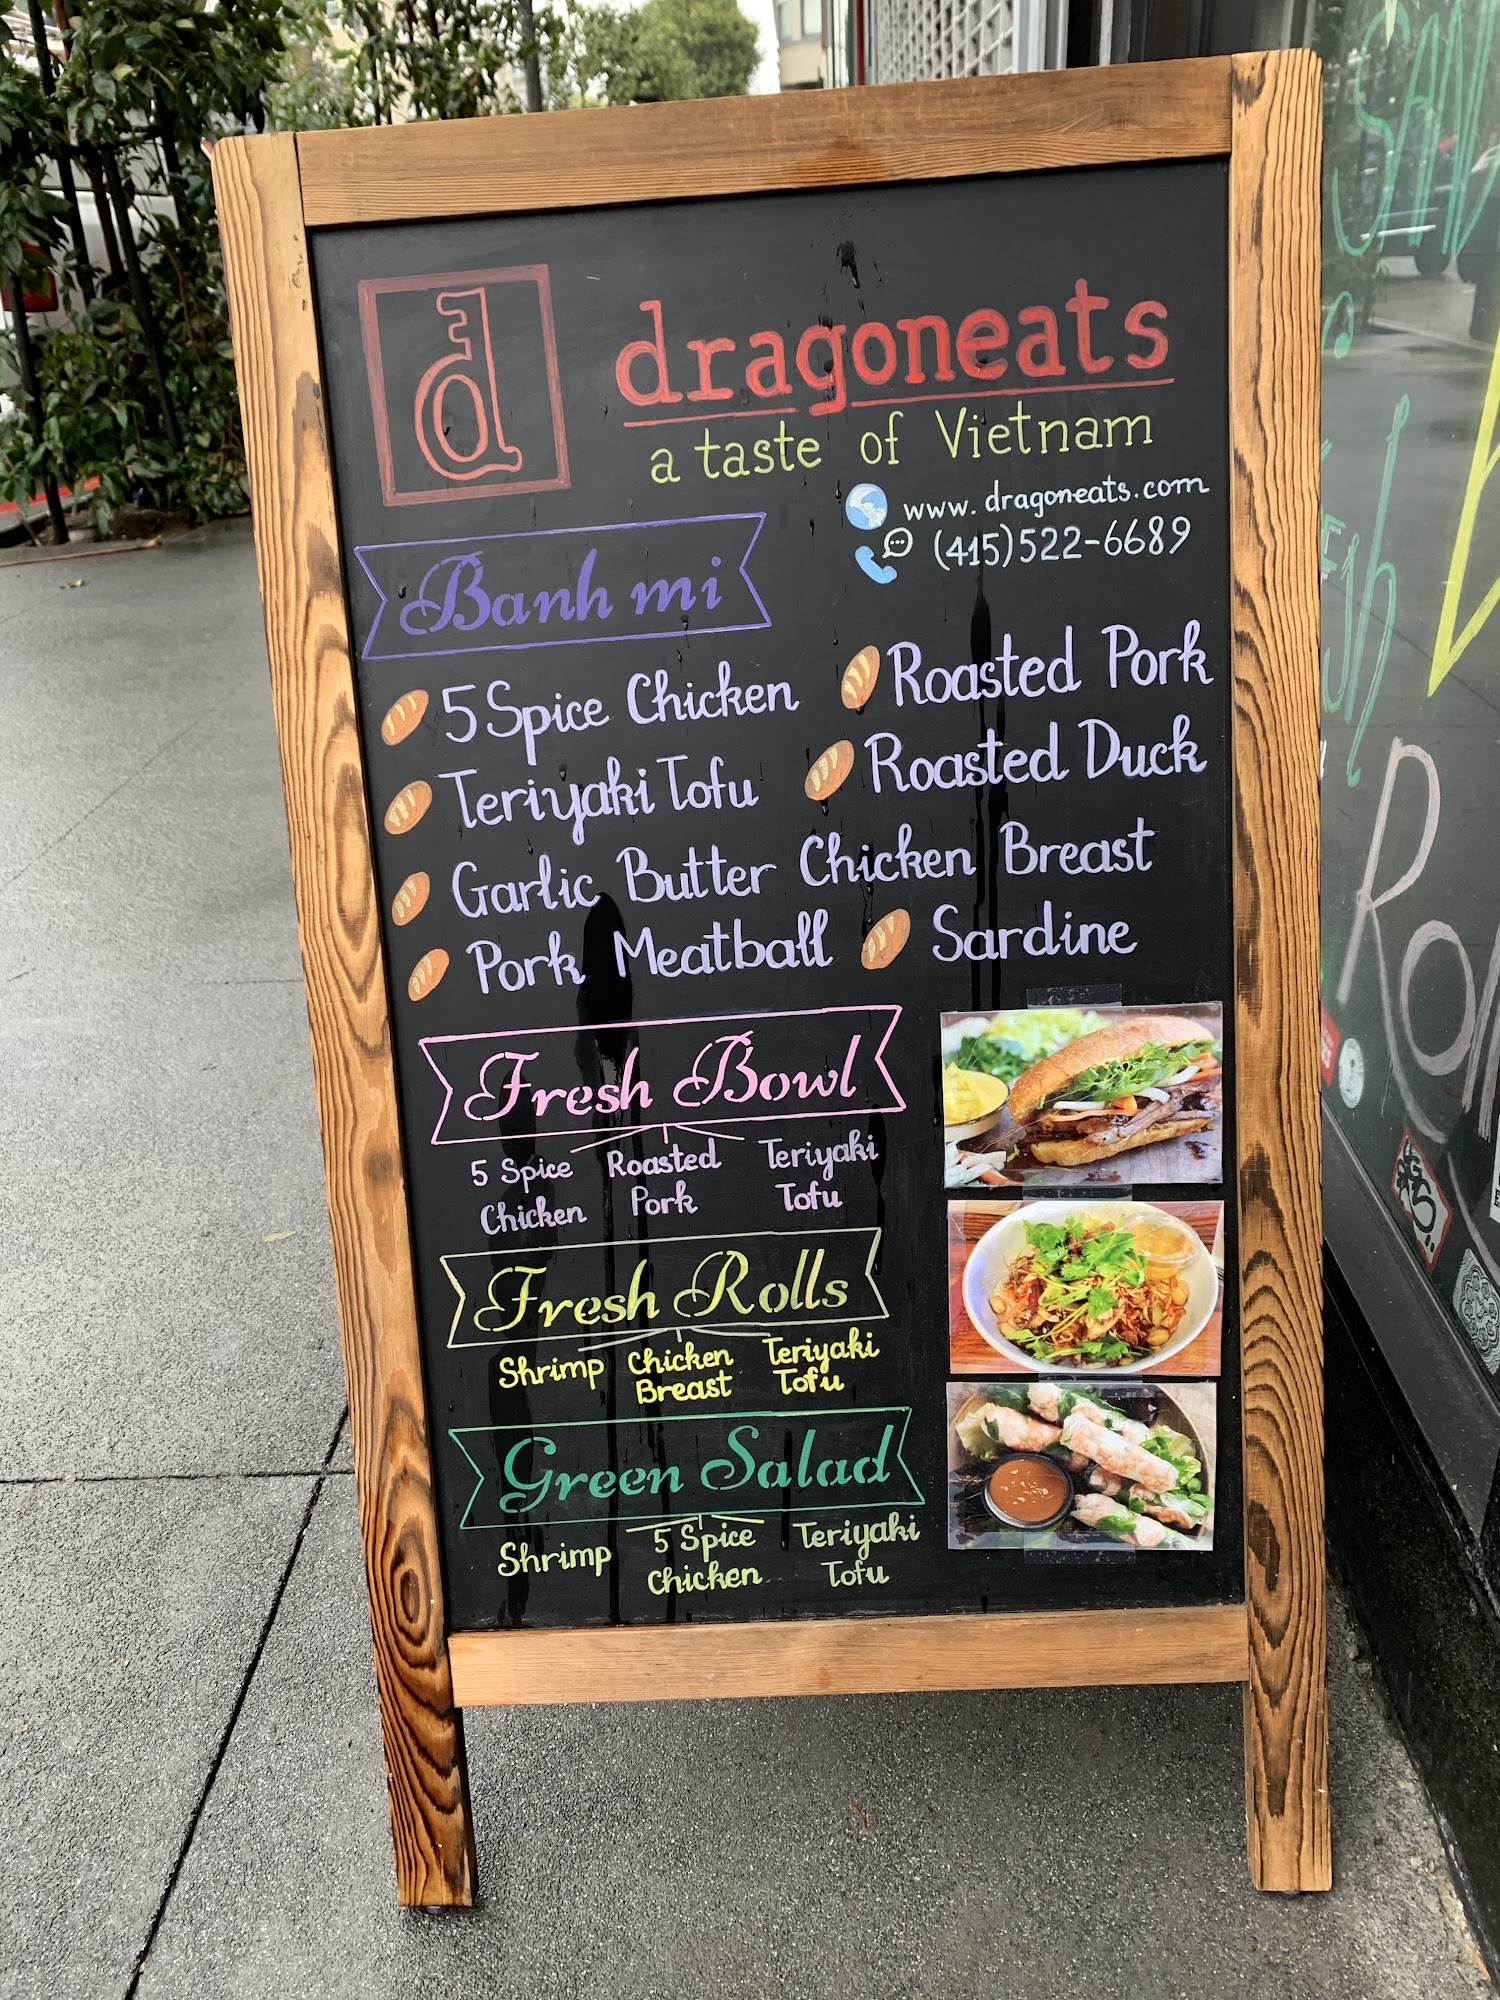 d
dragoneats
a taste of Vietnam
www.dragoneats.com
(415)522-6689
Banh mi
5 Spice Chicken
Roasted Pork
Teriyaki Tofu
Roasted Duck
Garlic Butter Chicken Breast
Pork Meatball
Sardine
Fresh Bowl
5 Spice
Chicken
Roasted
Pork
Teriyaki
Tofu
Fresh Rolls
Shrimp
Chicken
Breast
Teriyaki
Tofu
Green Salad
Shrimp
5 Spice
Chicken
Teriyaki
Tofu